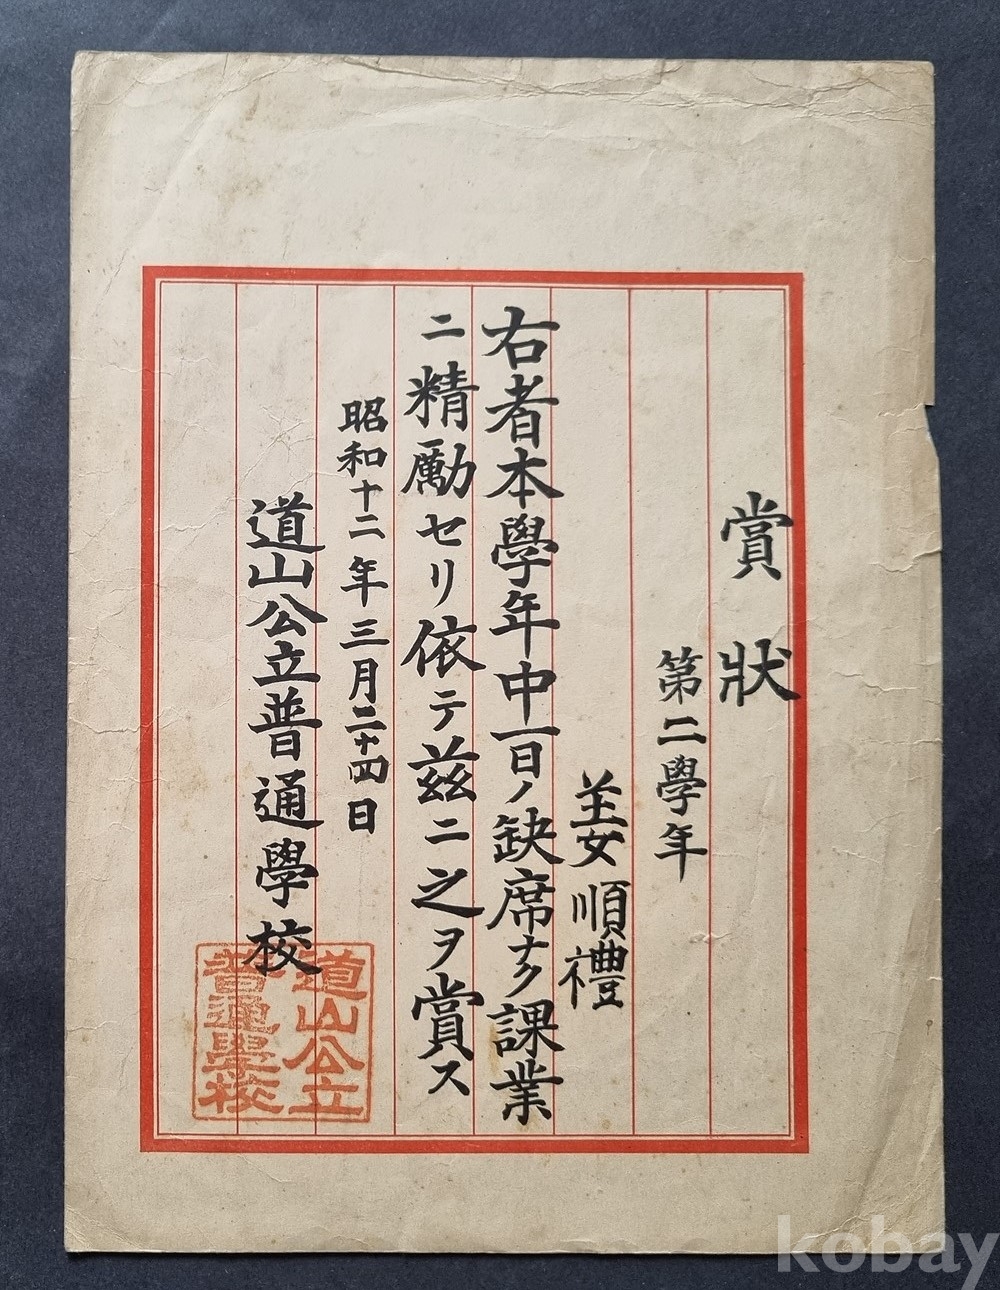 賞狀
第二學年
姜順禮
右者本學年中一日ノ缺席ナク課業
ニ精勵セリ依テ茲ニ之ヲ賞ス
昭和十二年三月二十四日
道山公立普通學校
道山公立
普通學校
kobay